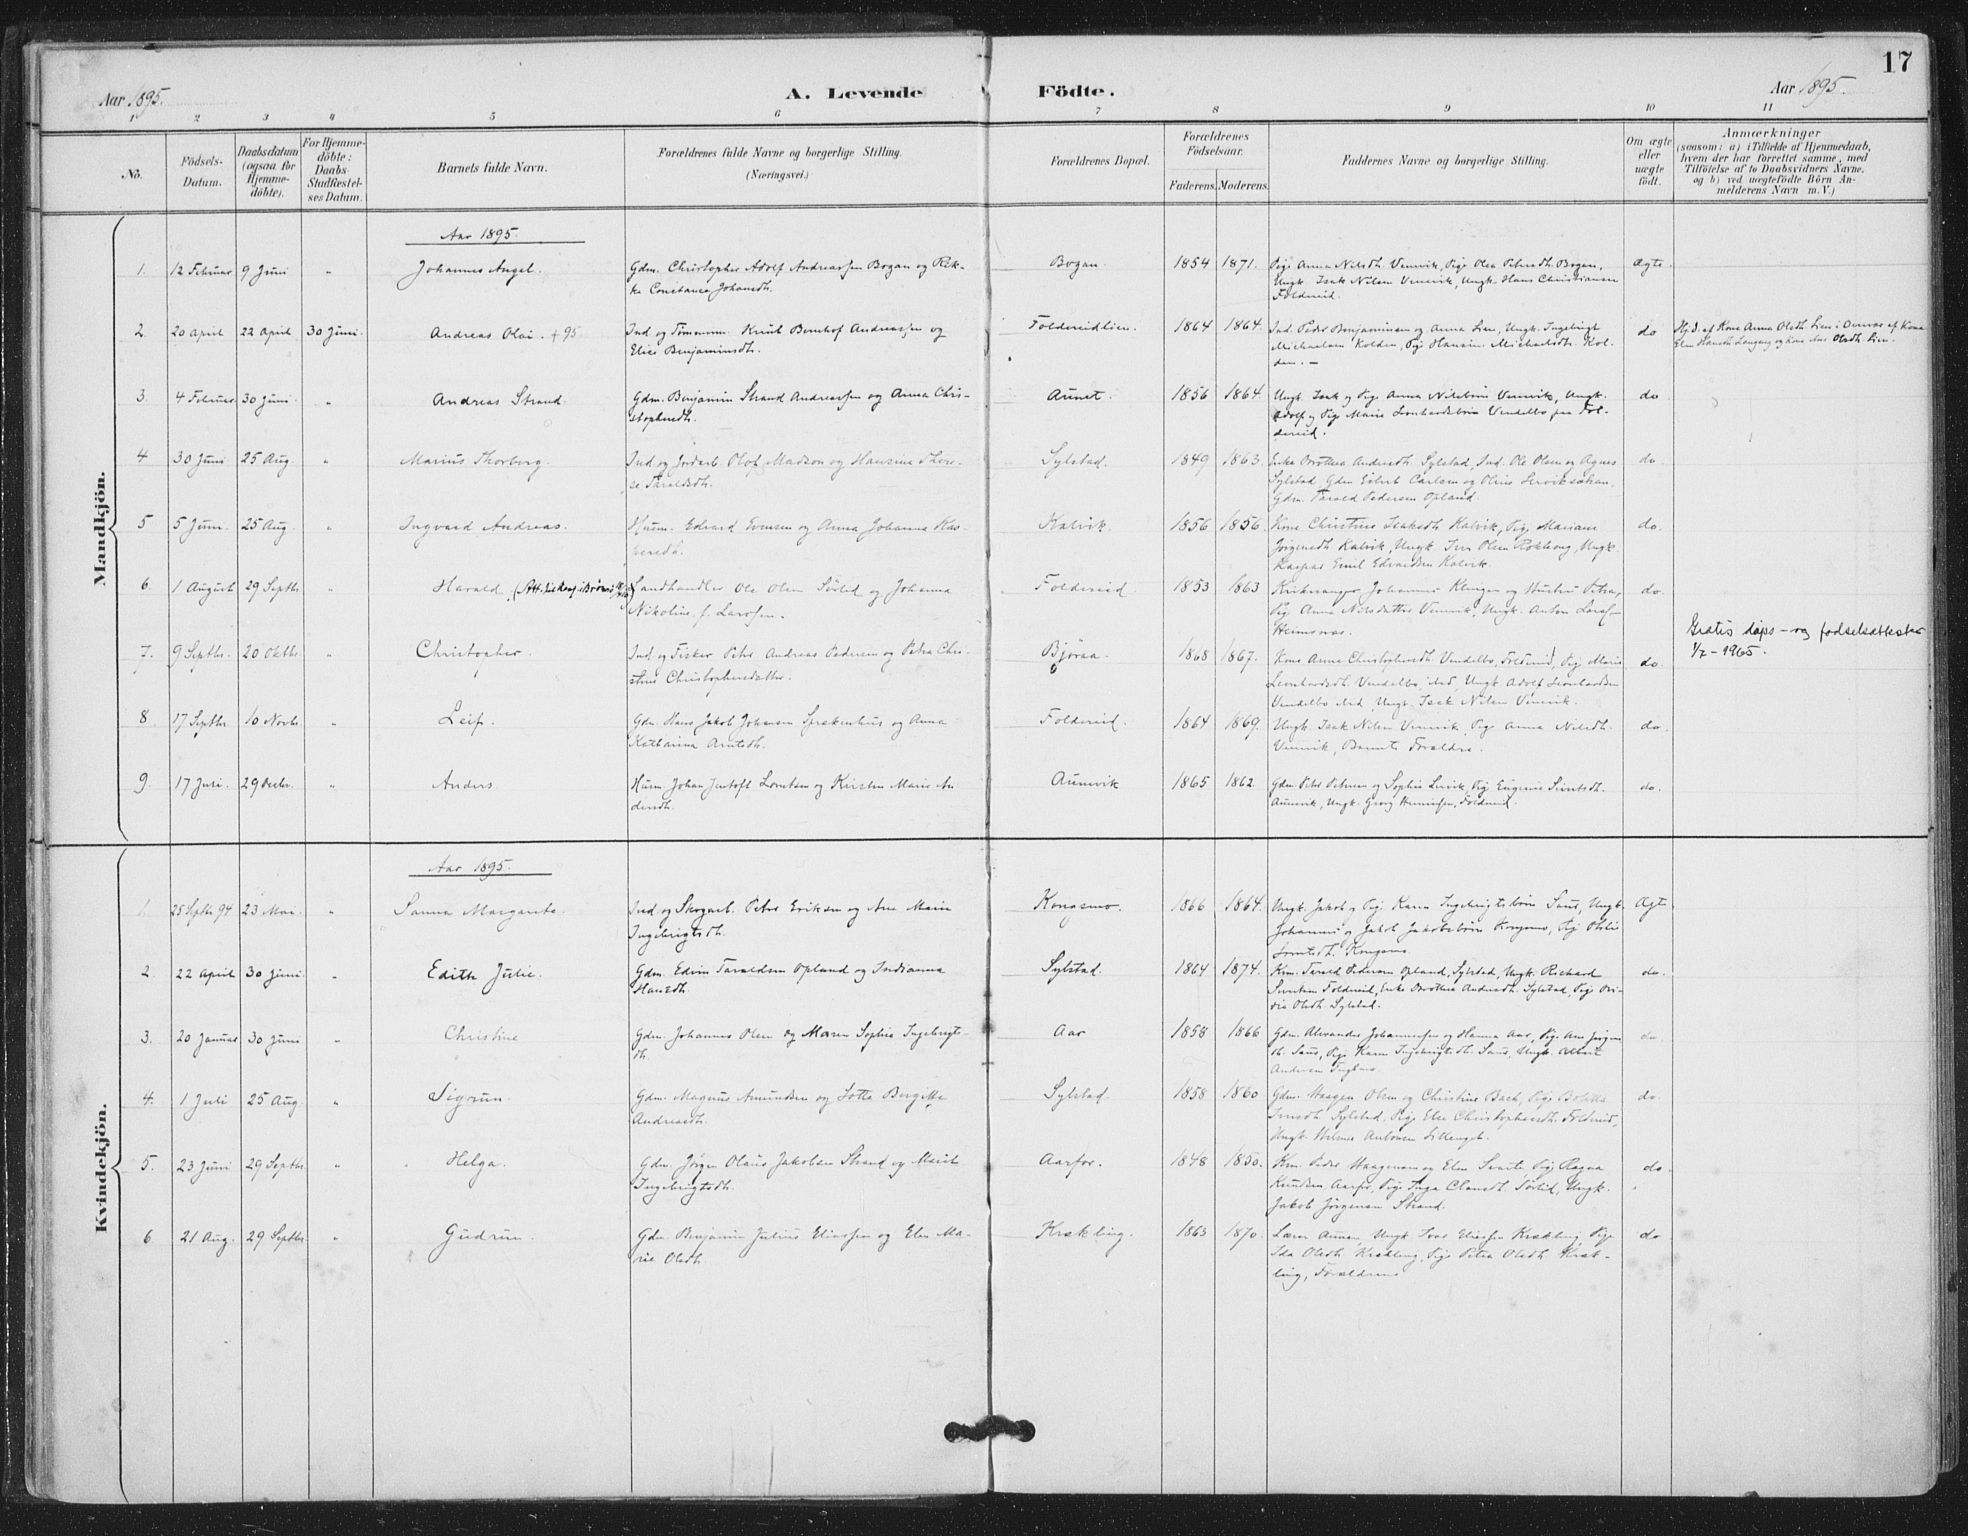 17
Aar 1895.
A. Levende Födte.
Aar 1895.
1 2 3 4 5 6 7 8 9 10 11
No.
Födsels-
Datum.
Daabsdatum
(ogsaa for
Hjemme-
döbte).
For Hjemme-
döbte:
Daabs-
Stadfæstel-
ses Datum.
Barnets fulde Navn.
Forældrenes fulde Navne og borgerlige Stilling.
(Næringsvei.)
Forældrenes Bopæl.
Forældrenes
Födselsaar.
Faderens. Moderens.
Faddernes Navne og borgerlige Stilling.
Om ægte
eller
uægte
født.
Anmærkninger
(saasom: a) i Tilfælde af Hjemmedaab,
hvem der har forrettet samme, med
Tilföielse af to Daabsvidners Navne,
og b) ved uægtefödte Börn An-
melderens Navn m. V.)
Mandkjön.
Aar 1895.
1. 12 Februar 9 Juni " Johannes Angel. Gdm. Christopher Adolf Andreassen Bogan og Rik-
ke Constance Johansdh. Bogan. 1854 1871. Pige Anna Nilsdh. Vennvik, Pige Olea Petersdh. Bogan,
Ungk. Isak Nilsen Vennvik, Ungk. Hans Christiansen
Foldereid. ægte
2. 20 april 22 april 30 Juni. Andreas Olai. + 95 Ind. og Tømmerm. Knut Bernhof Andreassen og
Elise Benjaminsdh. Foldereidlien. 1864 1864. Ind. Peder Benjaminsen og Anna Lien, Ungk. Ingebrigt
Michaelsen Kolden, Pige Hansine Michaelsdh. Kol-
den. – do Hj.d. af Kone Anna Olsdh. Lien i Overvær af Kone
3. 4 Februar 30 Juni. " Andreas Strand. Gdm. Benjamin Strand Andreassen og Anna Chri-
stophersdh. Aunet. 1856 1864. Ungk. Isak og Pige Anna Nilsbörn Vennvik, Ungk.
Adolf og Pige Marie Leonhardsbörn Vendelbo paa Fol-
dereid. do
4 30 Juni 25 Aug. " Marius Thorberg. Ind. og Jordarb. Olof Madsen og Hansine There-
se Taraldsdh. Sylstad. 1849 1863. Enke Dorothea Andersdh. Sylstad, Ind. Ole Olsen og Agnes
Sylstad, Gdm. Edvert Carlsen og Oline
Gdm. Tarald Pedersen Opland. do.
5 5 Juni. 25 Aug. " Ingvard Andreas. Husm. Edvard Evensen og Anna Johanna Kas-
persdh. Kalvik. 1856 1856. Kone Christine Isaksdh. Kalvik, Pige Mariane
Jörgensdh. Kalvik, Ungk. Iver Olsen, Ungk.
Kaspar Emil Edvardsen Kalvik. do.
6. 1 August 29 Septbr. " Harald. Landhandler Ole Olsen Sørlid og Johanna
Nikoline f. Larssen. Foldereid. 1853 1863 Kirkesanger Johannes Klingen og Hustru Petra,
Pige Anna Nilsdatter Vennvik, Ungk. Anton
Heimsnes. do.
7. 9 Septbr. 20 Oktbr. " Christopher. Ind. og Fisker Peter Andreas Pedersen og Petra Chri-
stine Christophersdatter. Bjøraa. 1868 1867. Kone Anna Christophersdh. Vendelbo, Foldereid, Pige Marie
Leonhardsdh. Vendelbo, ibid, Ungk. Adolf Leonhardsen
Vendelbo ibid, Ungk. Isak Nilsen Vennvik. do. Gratis dåps- og fødselsattester
1/7-1965.
8 17 Septbr. 10 Novbr. " Leif. Gdm. Hans Jakob Johansen Sprækenhus og Anna
Katharina Arntsdh. Foldereid. 1864 1869. Ungk. Isak Nilsen Vennvik, Pige Anna Nilsdh.
Vennvik, Barnets Forældre. do.
9. 17 Juli. 29 Decbr. " Anders Husm. Johan Justoft Lorntsen og Kirsten Marie An-
dersdh. Aunvik 1865 1862. Gdm. Peter Petersen og Sophie, Pige Eugenie
Aunvik, Ungk. Georg, Foldereid. do.
Kvindekjön.
Aar 1895.
1. 25 Septbr 94 23 Mai. " Sanna Margarete. Ind. og Skogarb. Peter Eriksen og Ane Marie
Ingebrigtsdh. Kongsmo. 1866 1864. Ungk. Jakob og Pige Karen Ingebrigtsbörn Saus, Ungk.
Johannes og Jakob Jakobsbörn Kongsmo, Pige
Kongsmo. Ægt.
2. 22 april 30 Juni. " Edith Julie. Gdm. Edvin Taraldsen Opland og Indianna
Hansdh. Sylstad. 1864 1874. Km. Tarald Pedersen Opland, Sylstad, Ungk. Richard
Foldereid, Enke Dorothea Andersdh. Sylstad, Pige
Olsdh. Sylstad. do.
3. 20 Januar 30 Juni " Christine Gdm. Johannes Olsen og Maren Sophie Ingebrigts-
dh. Aar 1858 1866 Gdm. Alexander Johannessen og Hanna Aar, Pige Ane Jörgens-
dh. Saus, Pige Karen Ingebrigtsdh. Saus, Ungk. Albert
Andersen. do
4. 1 Juli 25 Aug. " Sigrun. Gdm. Magnus Amundsen og Lotte Bergitte
Andreasdh. Sylstad. 1858 1860 Gdm. Haagen Olsen og Christine Bach, Pige
Sylstad, Pige Else Christophersdh. Foldereid,
Ungk. Antonsen. do.
5. 23 Juni 29 Septbr. " Helga. Gdm. Jörgen Olaus Jakobsen Strand og Marit
Ingebrigtsdh. Aarfor. 1848 1850. Km. Peder Haagensen og Elen, Pige Ragna
Knudsen, Aarfor, Pige Inga Clausdh. Sørlid, Ungk.
Jakob Jørgensen Strand. do.
6 21 Aug. 29 Septbr. " Gudrun. Gdm. Benjamin Julius Eliassen og Elen Ma-
rie Olsdh. Krækling. 1863 1870. Lærer, Ungk. Ivar Eliassen Krækling, Pige
Ida Olsdh. Krækling, Pige Petra Olsdh. Kræk-
ling, Forældrene. do